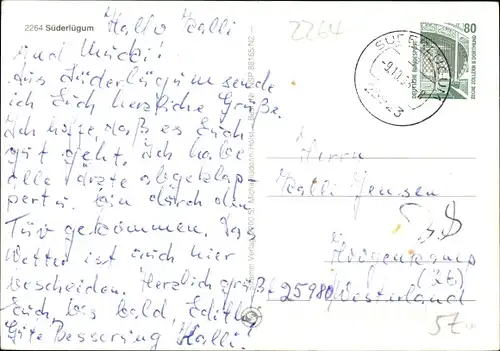 2264 Süderlügum
Hallo Kalli
und Mucki!
Aus Süderlügum sende
ich Euch herzliche Grüße.
Ich hoffe, daß es Euch
gut geht. Ich habe
alle Ärzte abgeklap-
pert u. bin durch den
Tüv gekommen. Das
Wetter ist auch hier
bescheiden. Herzlich grüßt
Euch, bis bald, Edith
Gute Besserung Kalli!
2264
80
DEUTSCHE BUNDESPOST
ZECHE ZOLLERN II DORTMUND
Herrn
Kalli Jensen
25980 Westerland